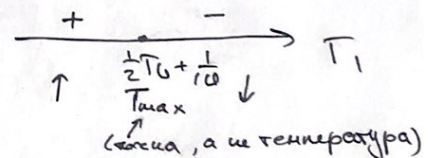 + −
½T₀ + 1/10 T₁
↑ Tmax ↓
↑
(точка, а не температура)